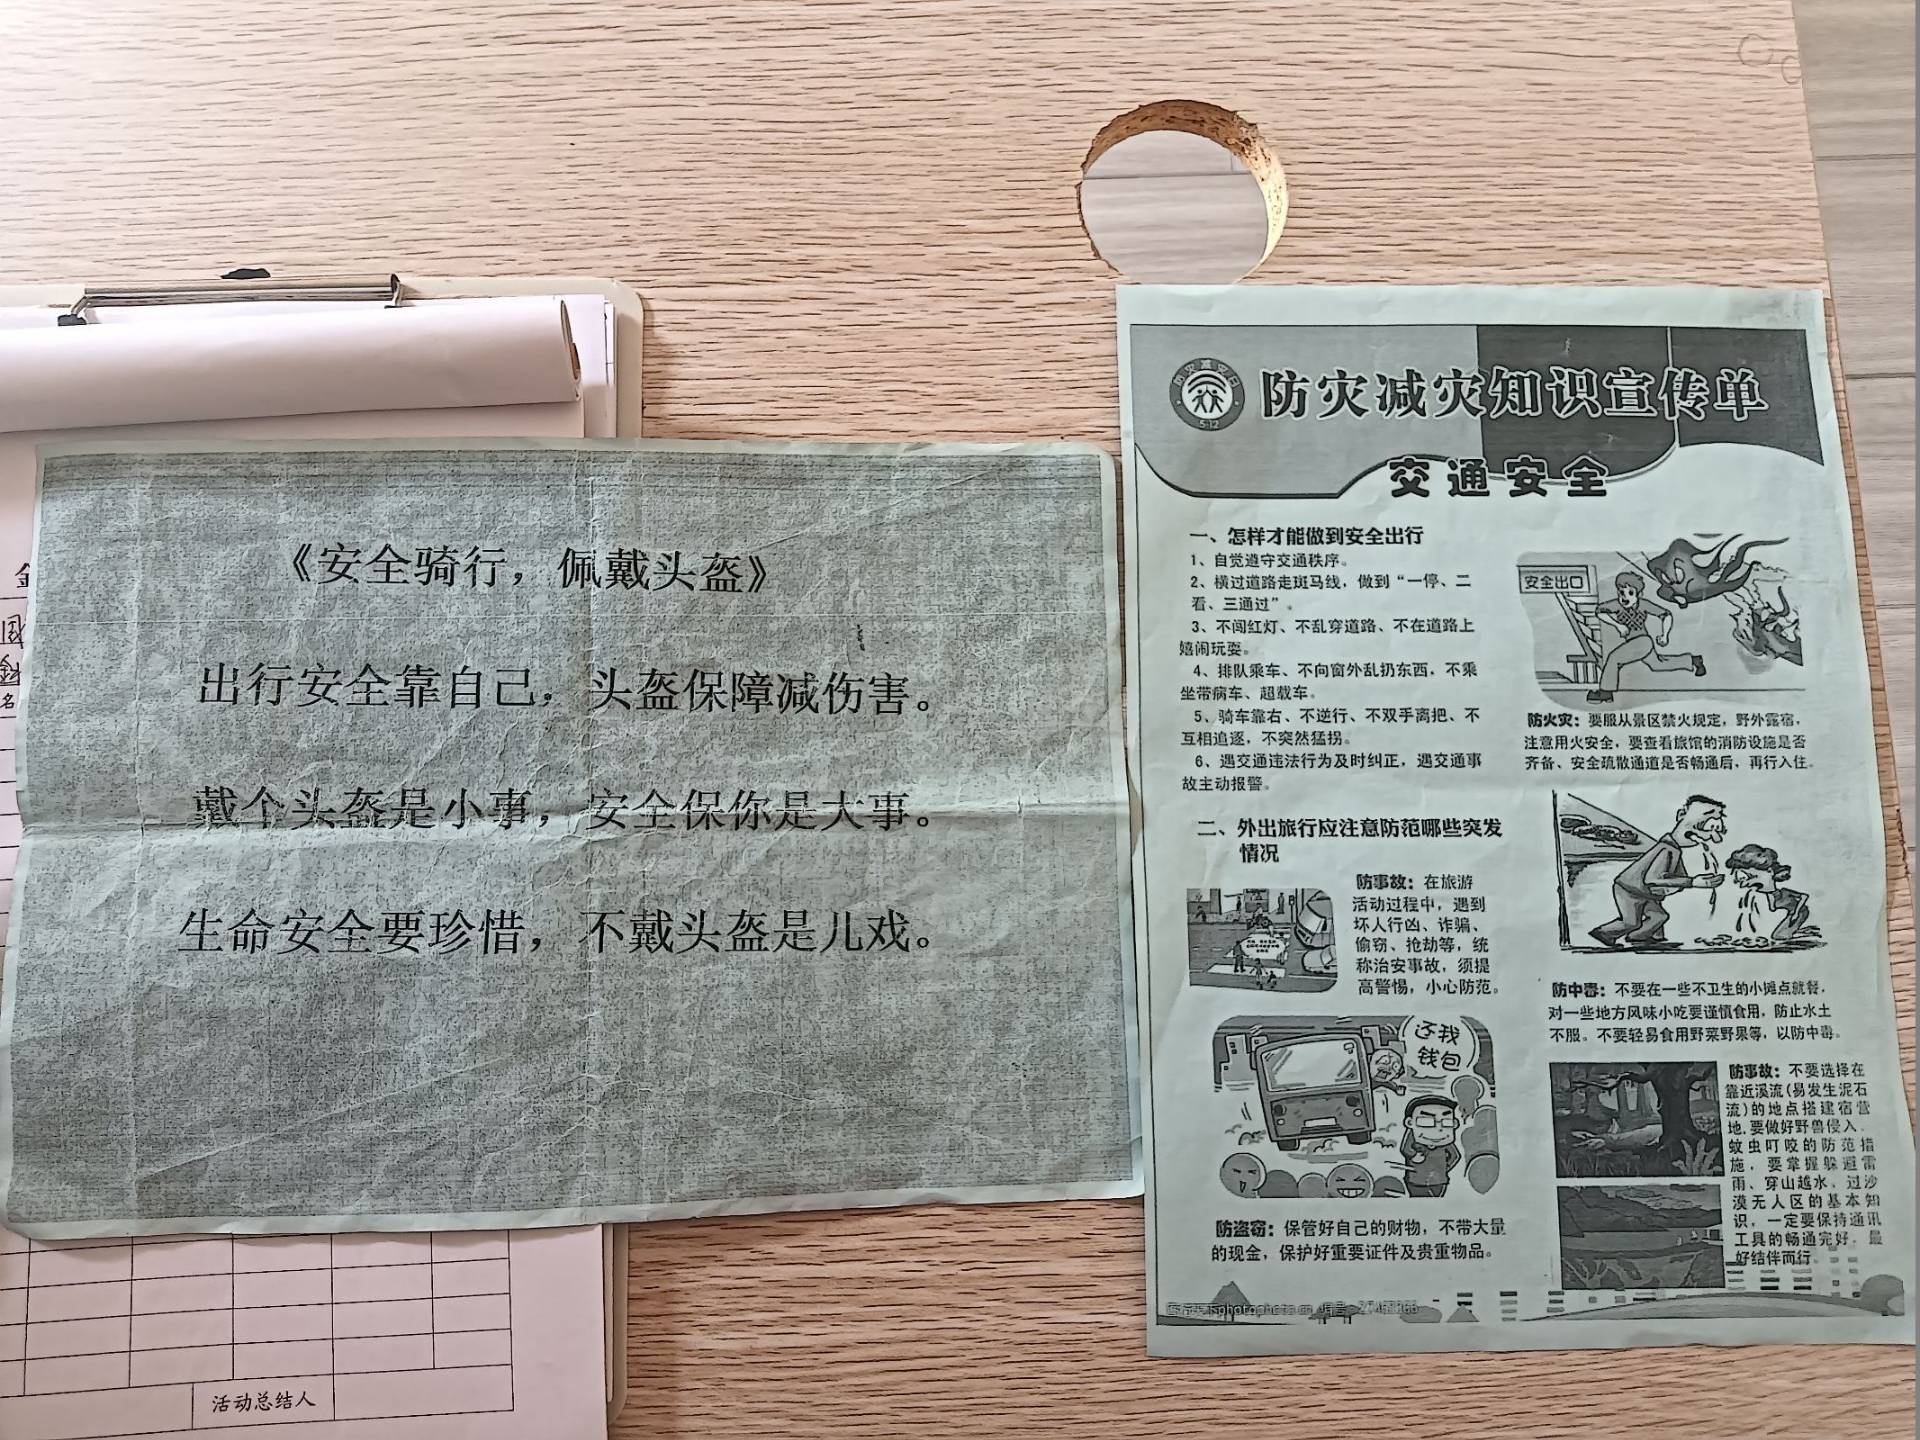 《安全骑行，佩戴头盔》
出行安全靠自己，头盔保障减伤害。
戴个头盔是小事，安全保你是大事。
生命安全要珍惜，不戴头盔是儿戏。
活动总结人
防灾减灾日
5·12
防灾减灾知识宣传单
交通安全
一、怎样才能做到安全出行
1、自觉遵守交通秩序。
2、横过道路走斑马线，做到“一停、二
看、三通过”。
3、不闯红灯、不乱穿道路、不在道路上
嬉闹玩耍。
4、排队乘车、不向窗外乱扔东西，不乘
坐带病车、超载车。
5、骑车靠右、不逆行、不双手离把、不
互相追逐，不突然猛拐。
6、遇交通违法行为及时纠正，遇交通事
故主动报警。
二、外出旅行应注意防范哪些突发
情况
防事故：在旅游
活动过程中，遇到
坏人行凶、诈骗、
偷窃、抢劫等，统
称治安事故，须提
高警惕，小心防范。
还我
钱包
防盗窃：保管好自己的财物，不带大量
的现金，保护好重要证件及贵重物品。
安全出口
防火灾：要服从景区禁火规定，野外露宿，
注意用火安全，要查看旅馆的消防设施是否
齐备、安全疏散通道是否畅通后，再行入住。
防中毒：不要在一些不卫生的小摊点就餐，
对一些地方风味小吃要谨慎食用，防止水土
不服。不要轻易食用野菜野果等，以防中毒。
防事故：不要选择在
靠近溪流(易发生泥石
流)的地点搭建宿营
地.要做好野兽侵入、
蚊虫叮咬的防范措
施，要掌握躲避雷
雨、穿山越水、过沙
漠无人区的基本知
识，一定要保持通讯
工具的畅通完好，最
好结伴而行。